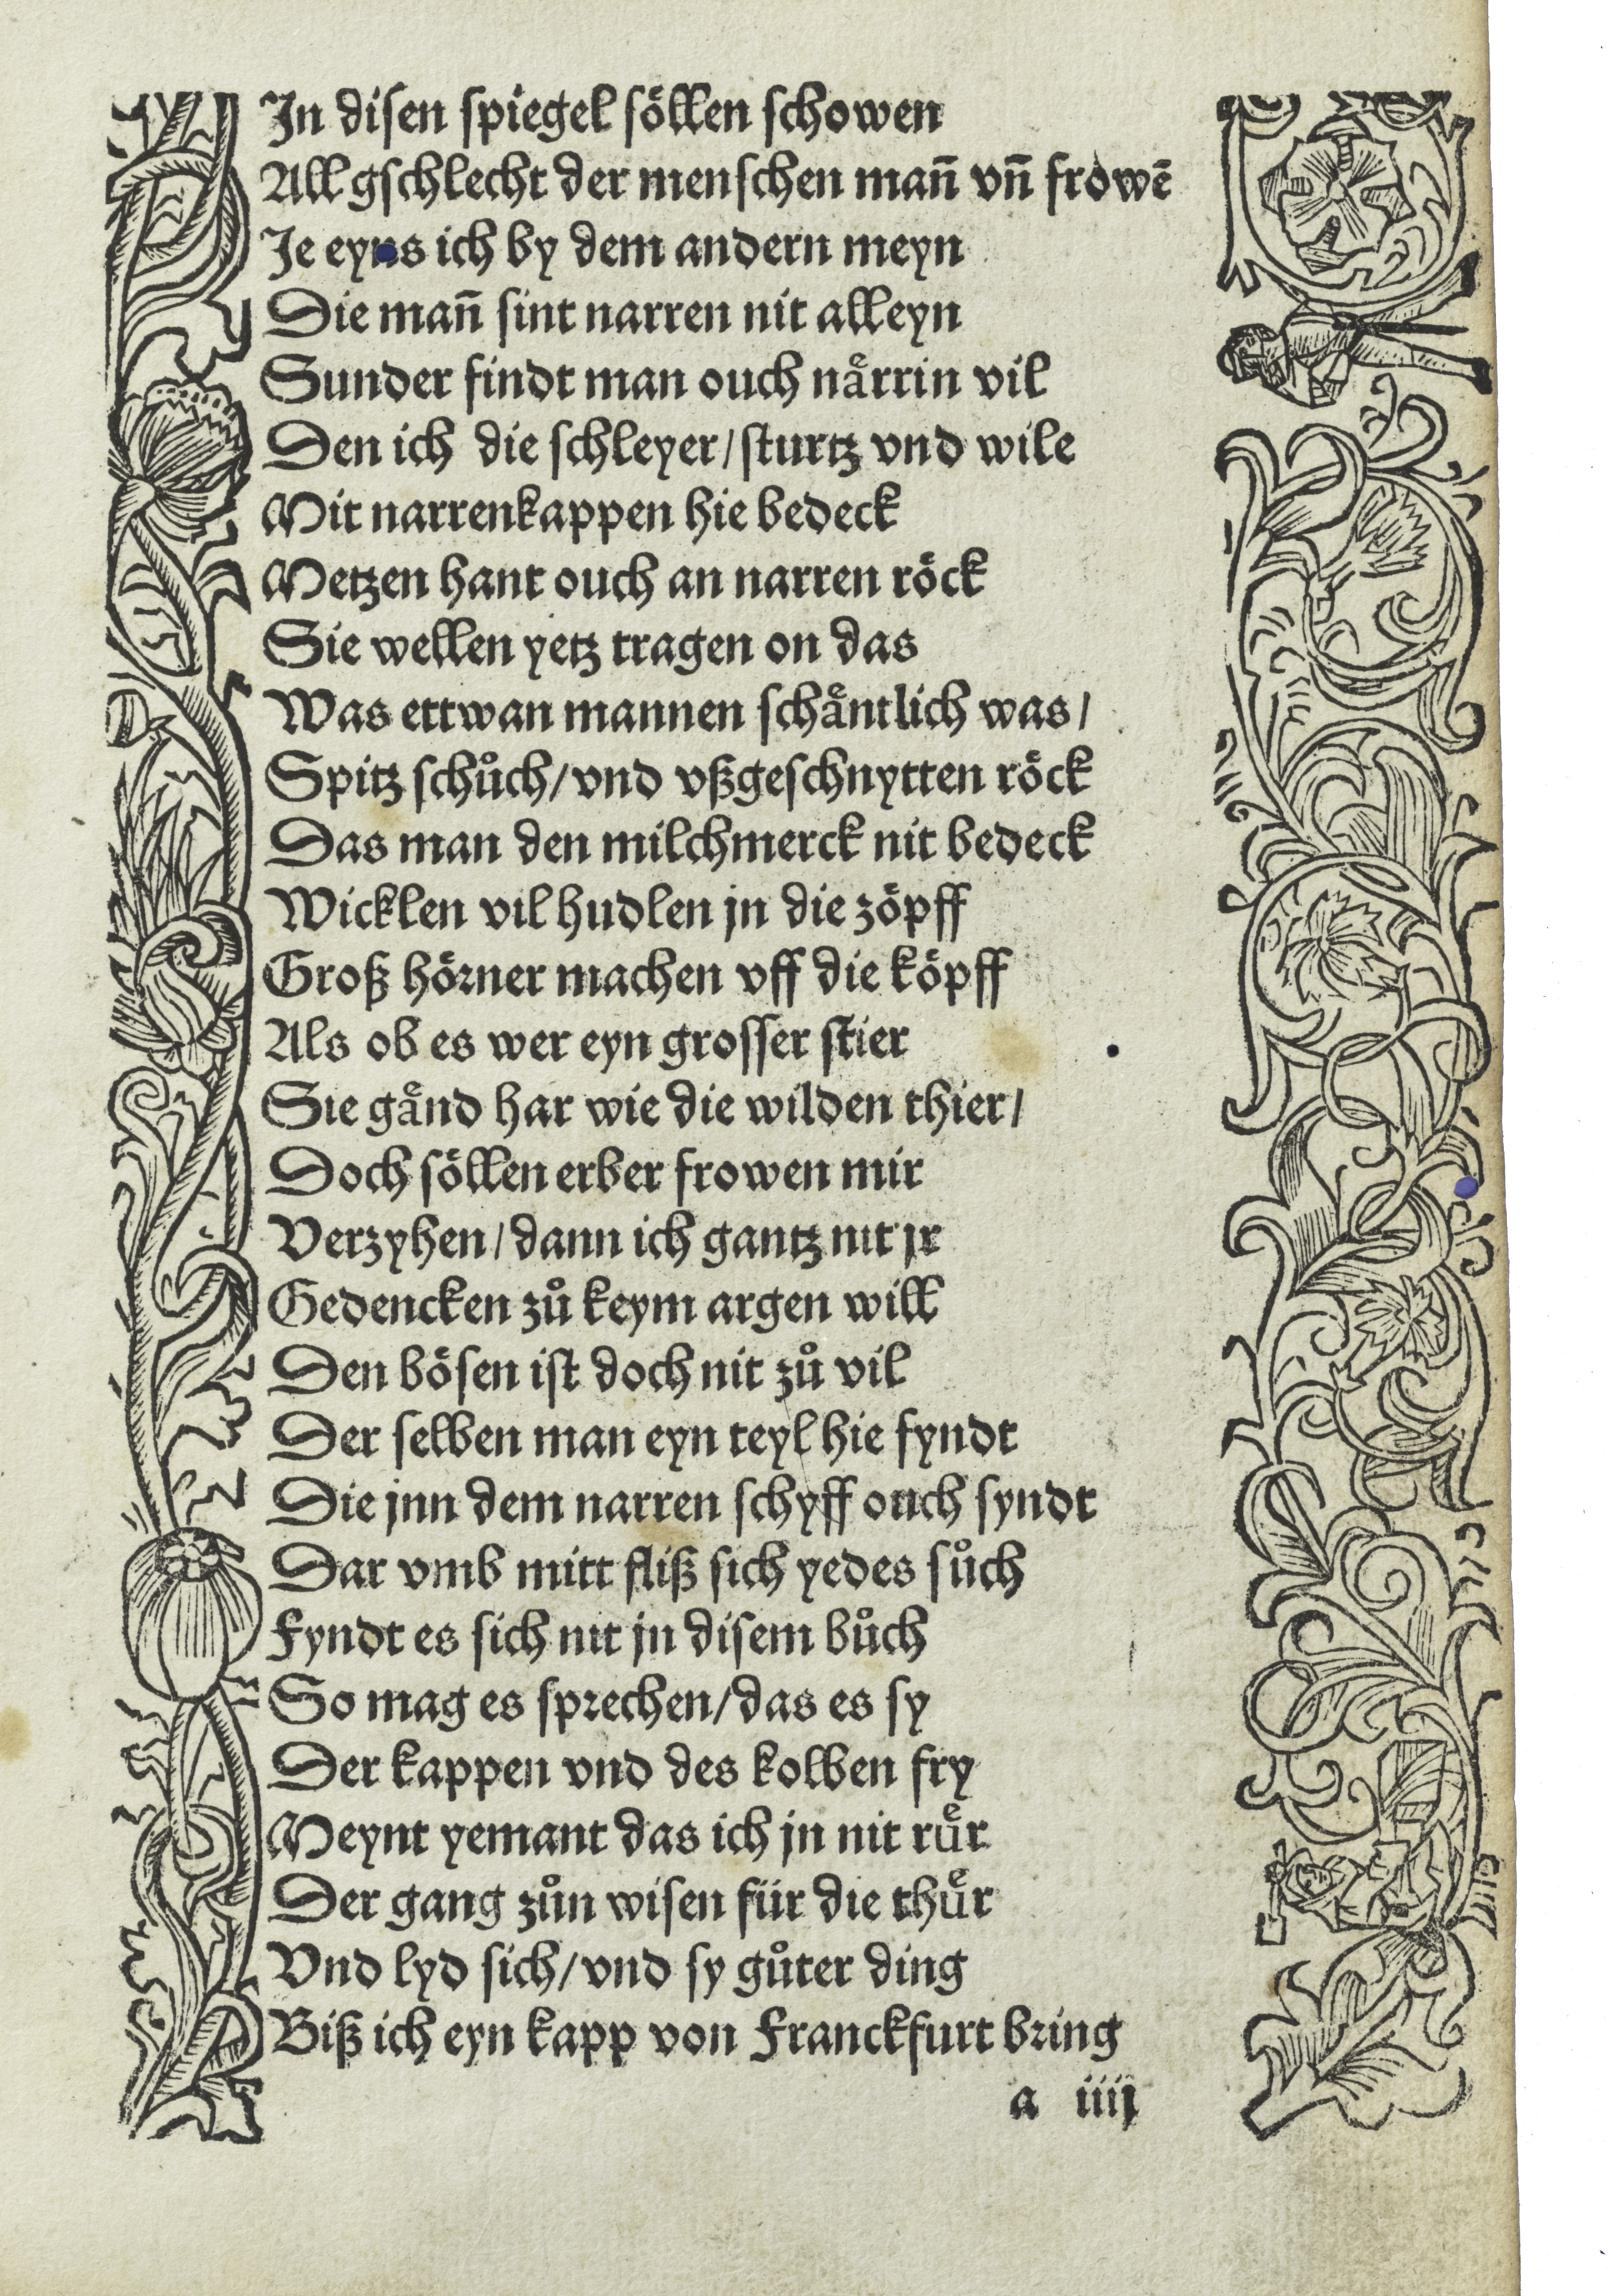 In disen spiegel söllen schowen
All gschlecht der menschen mañ vñ frowē
Je eyns ich by dem andern meyn
Die mañ sint narren nit alleyn
Sunder findt man ouch naͤrrin vil
Den ich die schleyer / sturtz vnd wile
Mit narrenkappen hie bedeck
Metzen hant ouch an narren roͤck
Sie wellen yetz tragen on das
Was ettwan mannen schaͤntlich was /
Spitz schůch / vnd vßgeschnytten roͤck
Das man den milchmerck nit bedeck
Wicklen vil hudlen jn die zoͤpff
Groß hoͤrner machen vff die koͤpff
Als ob es wer eyn grosser stier
Sie gaͤnd har wie die wilden thier /
Doch soͤllen erber frowen mir
Verzyhen / dann ich gantz nit jr
Gedencken zů keym argen will
Den boͤsen ist doch nit zů vil
Der selben man eyn teyl hie fyndt
Die jnn dem narren schyff ouch syndt
Dar vmb mitt fliß sich yedes sůch
Fyndt es sich nit jn disem bůch
So mag es sprechen / das es sy
Der kappen vnd des kolben fry
Meynt yemant das ich jn nit ruͤr
Der gang zůn wisen für die thuͤr
Vnd lyd sich / vnd sy gůter ding
Biß ich eyn kapp von Franckfurt bring
a iiij